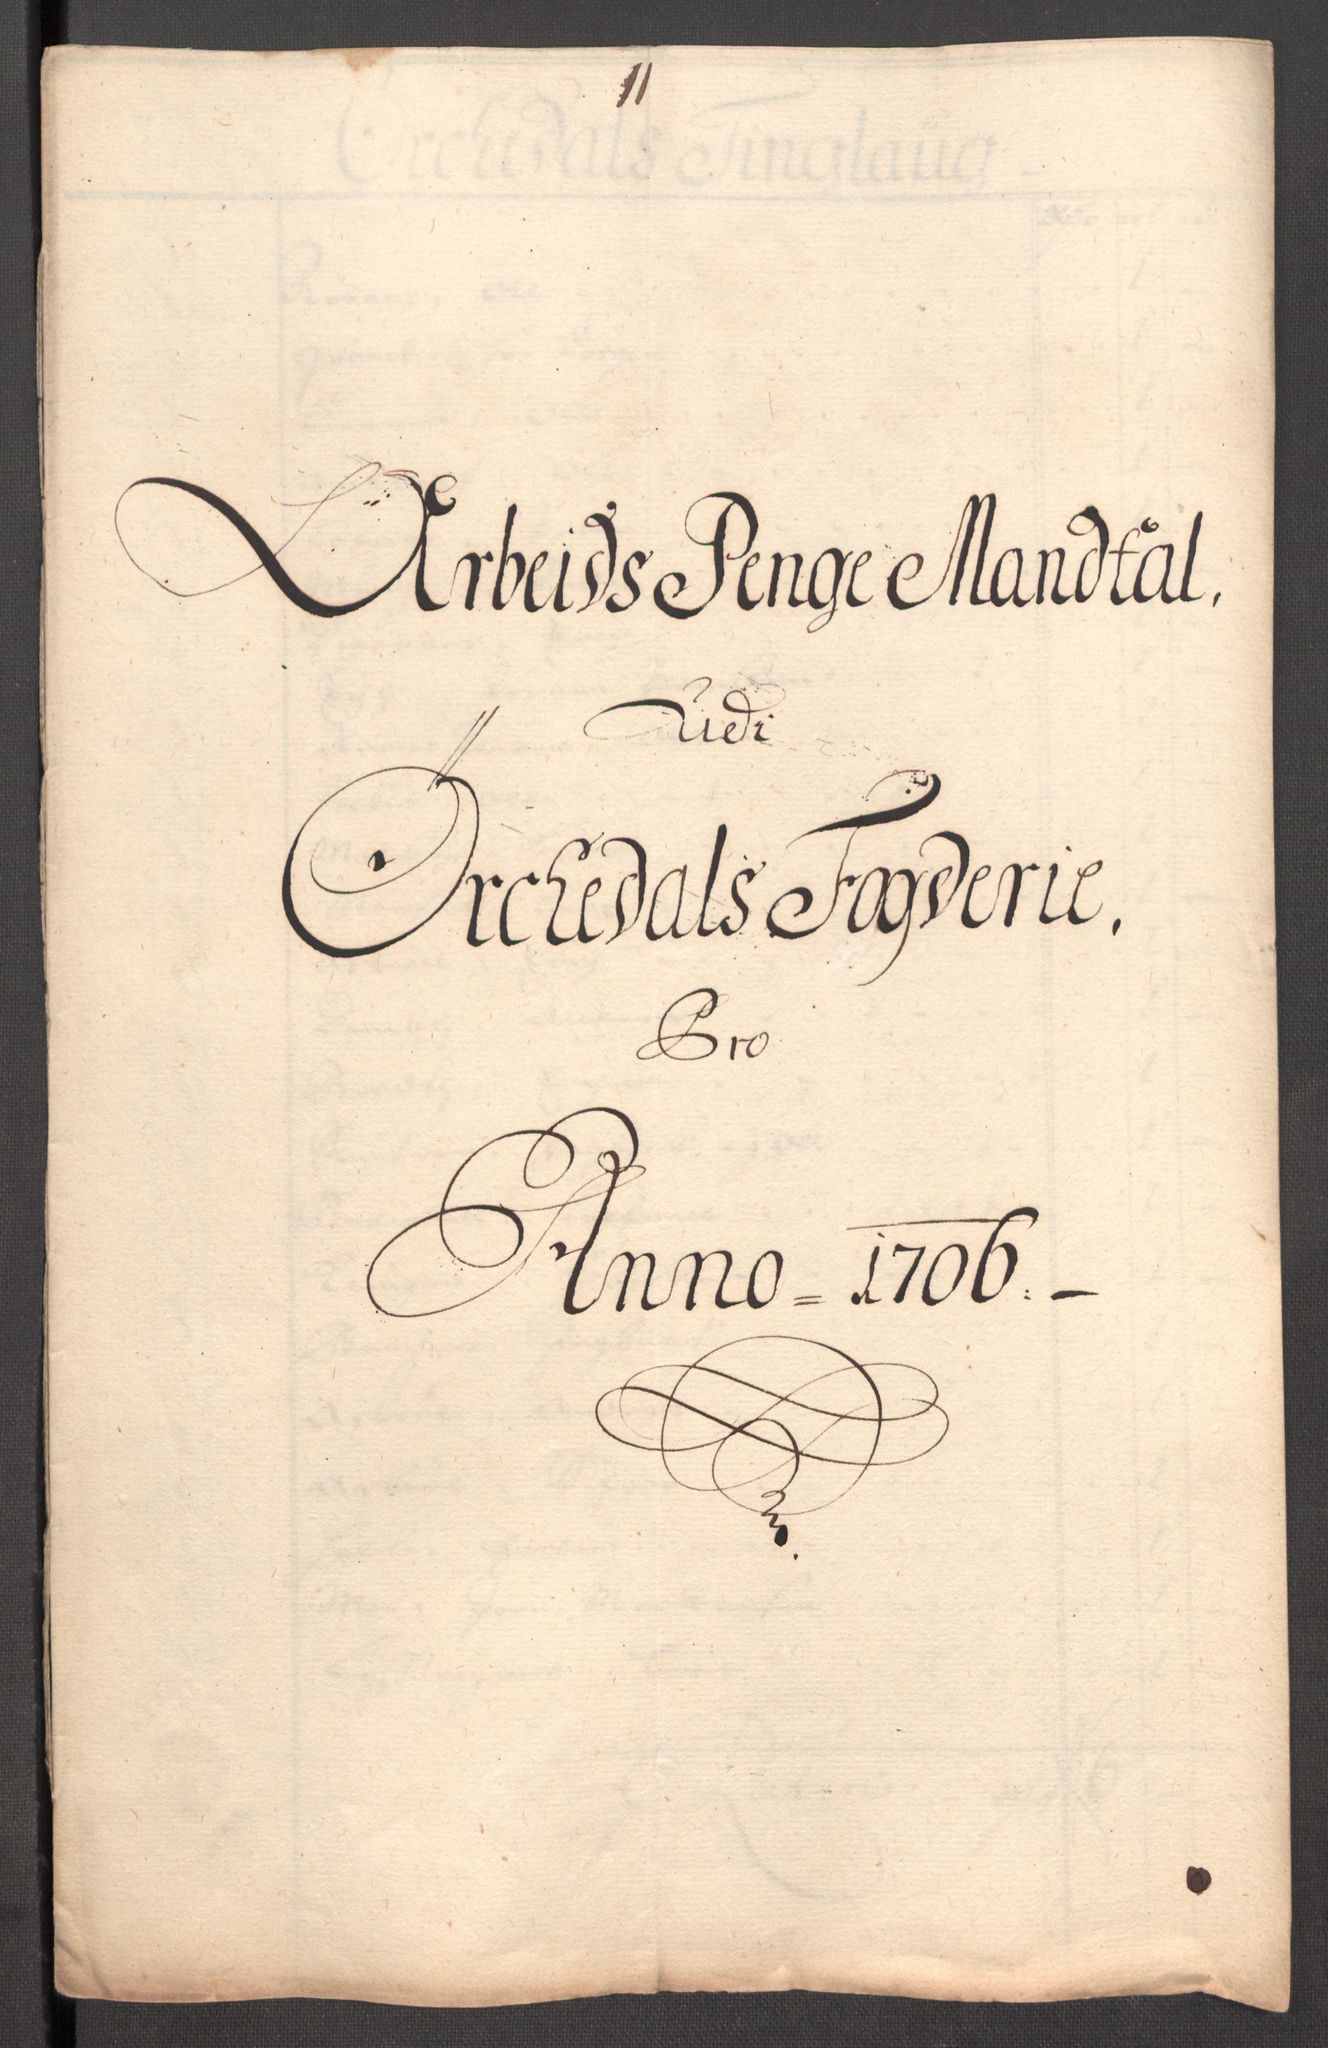 11
Arbeids Penge Mandtal.
Udi
Orchedals Fogderie.
Pro
Anno = 1706. –